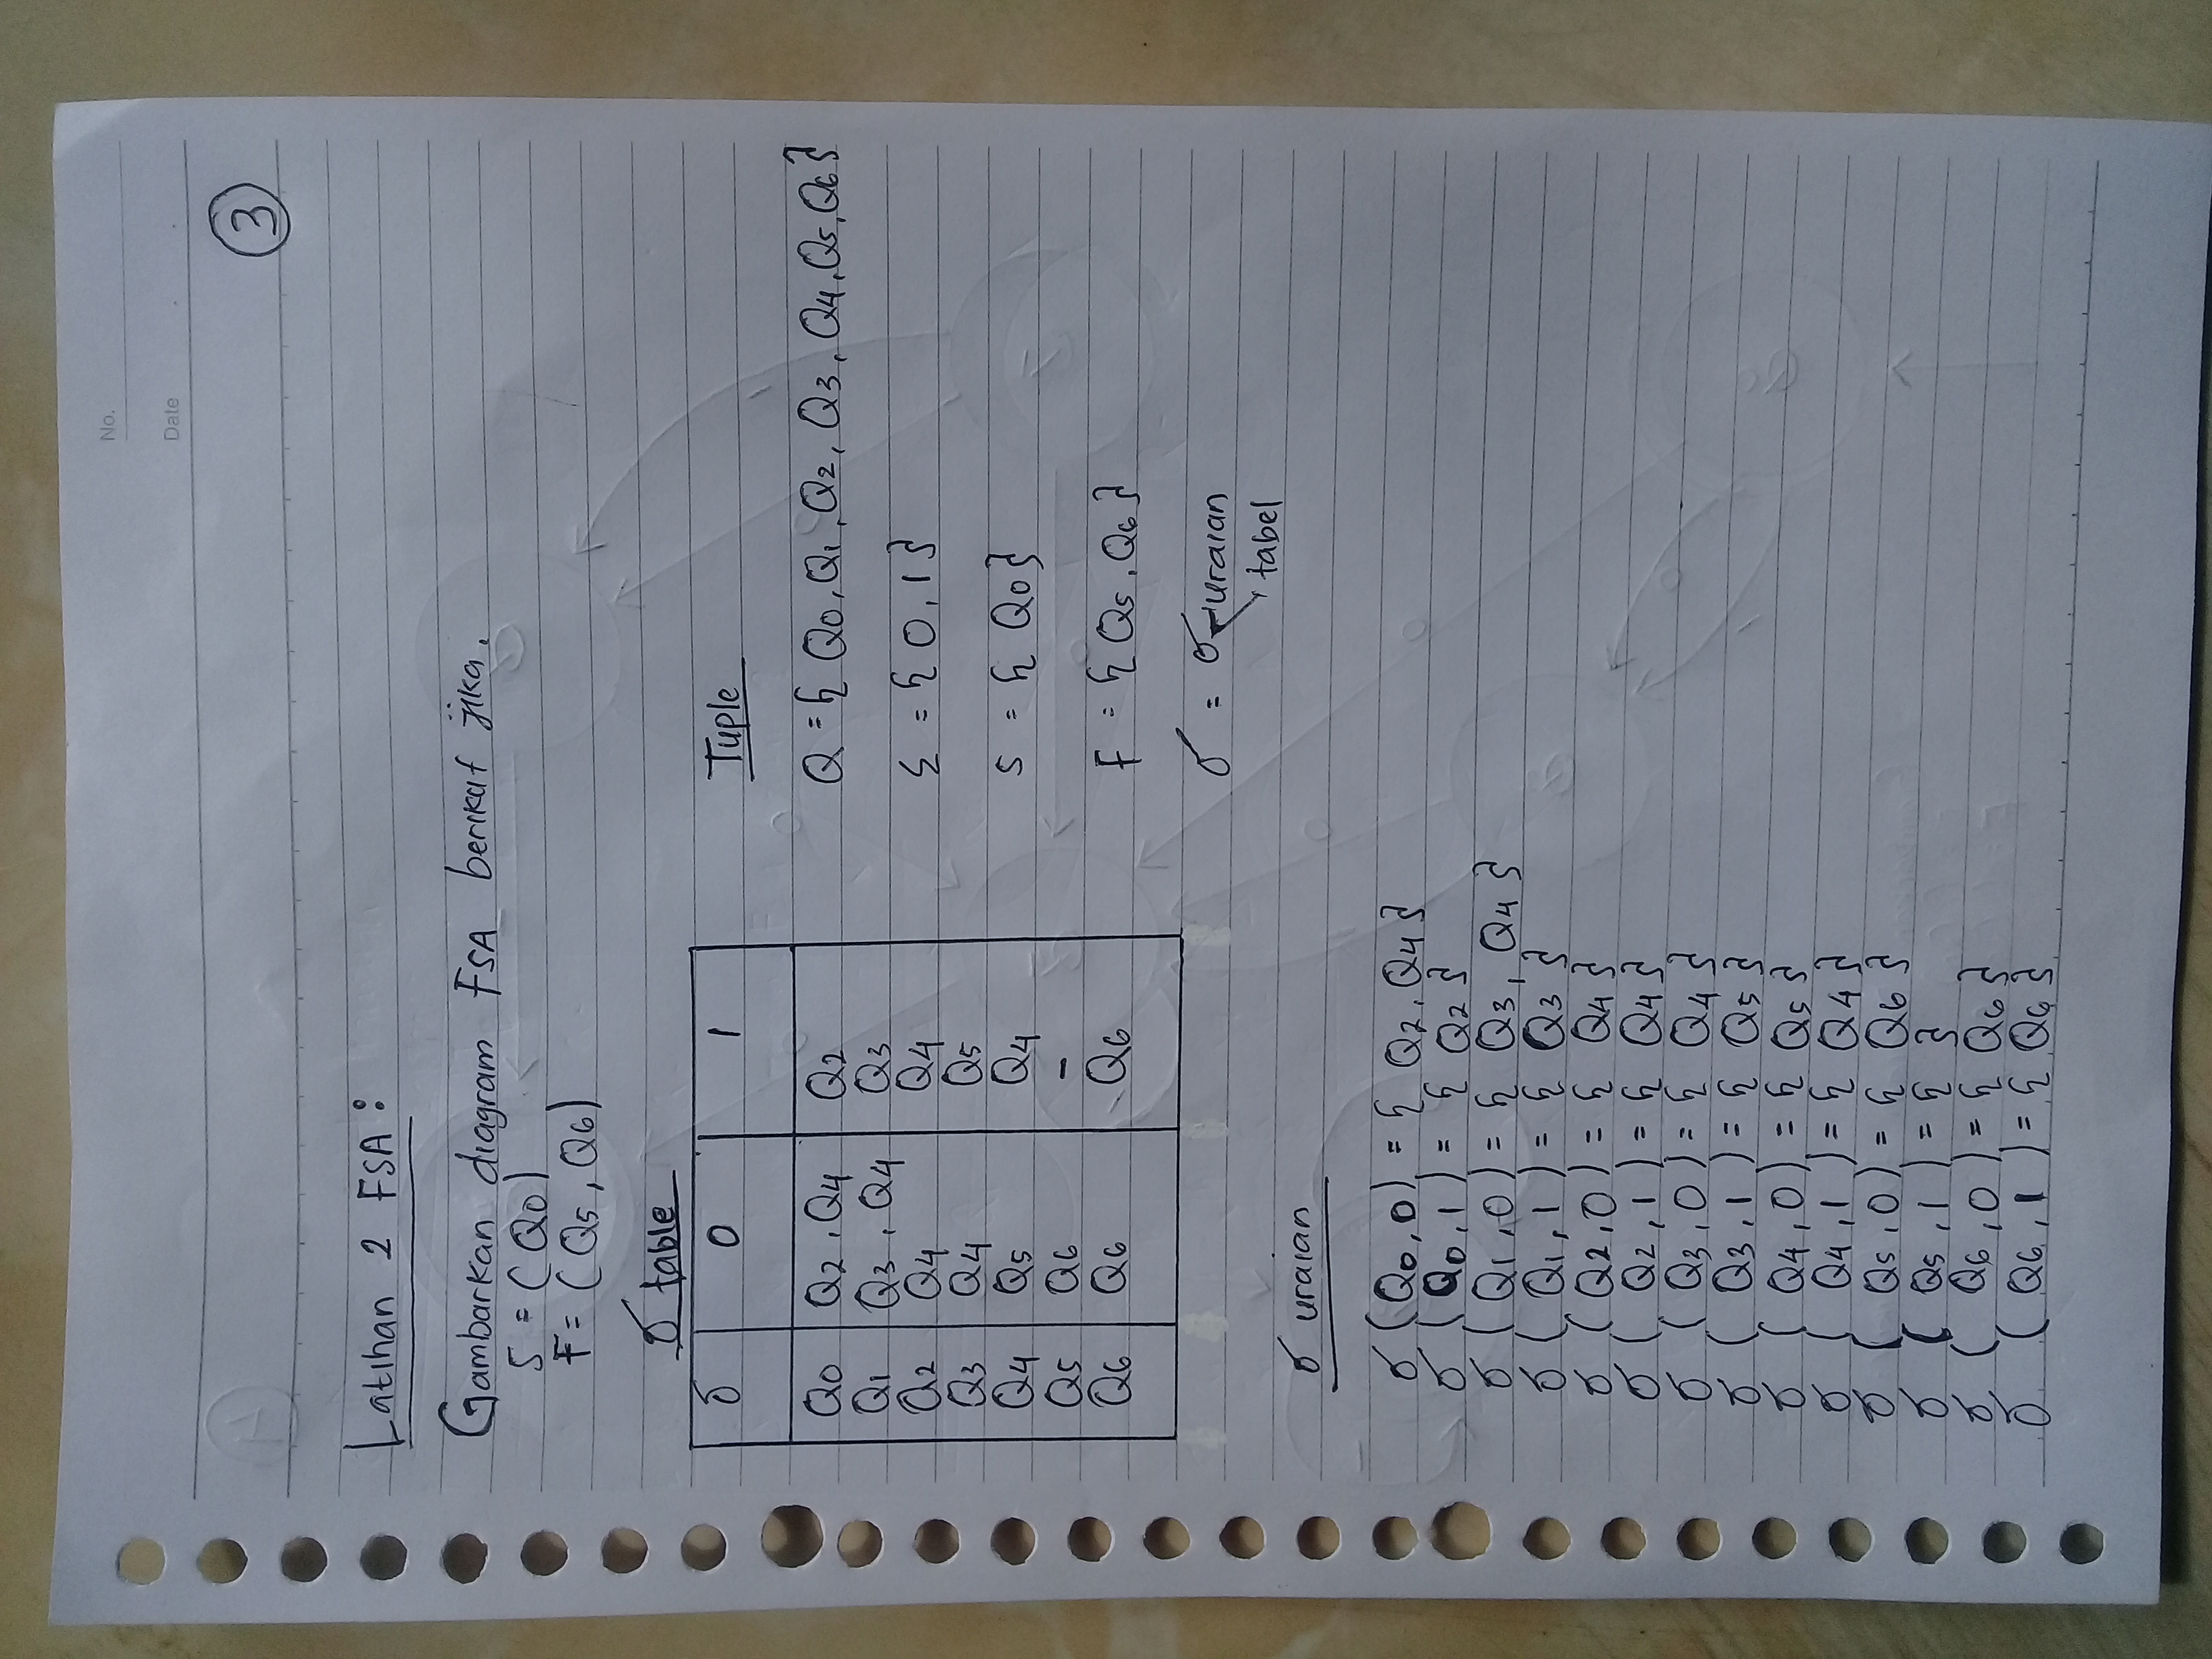 No.
Date
3
Latihan 2 FSA:
Gambarkan diagram FSA berikut jika.
S = (Q0)
F = (Q5, Q6)
σ table
σ 0 1
Q0 Q2, Q4 Q2
Q1 Q3, Q4 Q3
Q2 Q4 Q4
Q3 Q4 Q5
Q4 Q5 Q4
Q5 Q6 -
Q6 Q6 Q6
Tuple
Q = { Q0, Q1, Q2, Q3, Q4, Q5, Q6 }
Σ = { 0, 1 }
S = { Q0 }
F = { Q5, Q6 }
σ = σ uraian
tabel
σ uraian
σ (Q0, 0) = { Q2, Q4 }
σ (Q0, 1) = { Q2 }
σ (Q1, 0) = { Q3, Q4 }
σ (Q1, 1) = { Q3 }
σ (Q2, 0) = { Q4 }
σ (Q2, 1) = { Q4 }
σ (Q3, 0) = { Q4 }
σ (Q3, 1) = { Q5 }
σ (Q4, 0) = { Q5 }
σ (Q4, 1) = { Q4 }
σ (Q5, 0) = { Q6 }
σ (Q5, 1) = { }
σ (Q6, 0) = { Q6 }
σ (Q6, 1) = { Q6 }